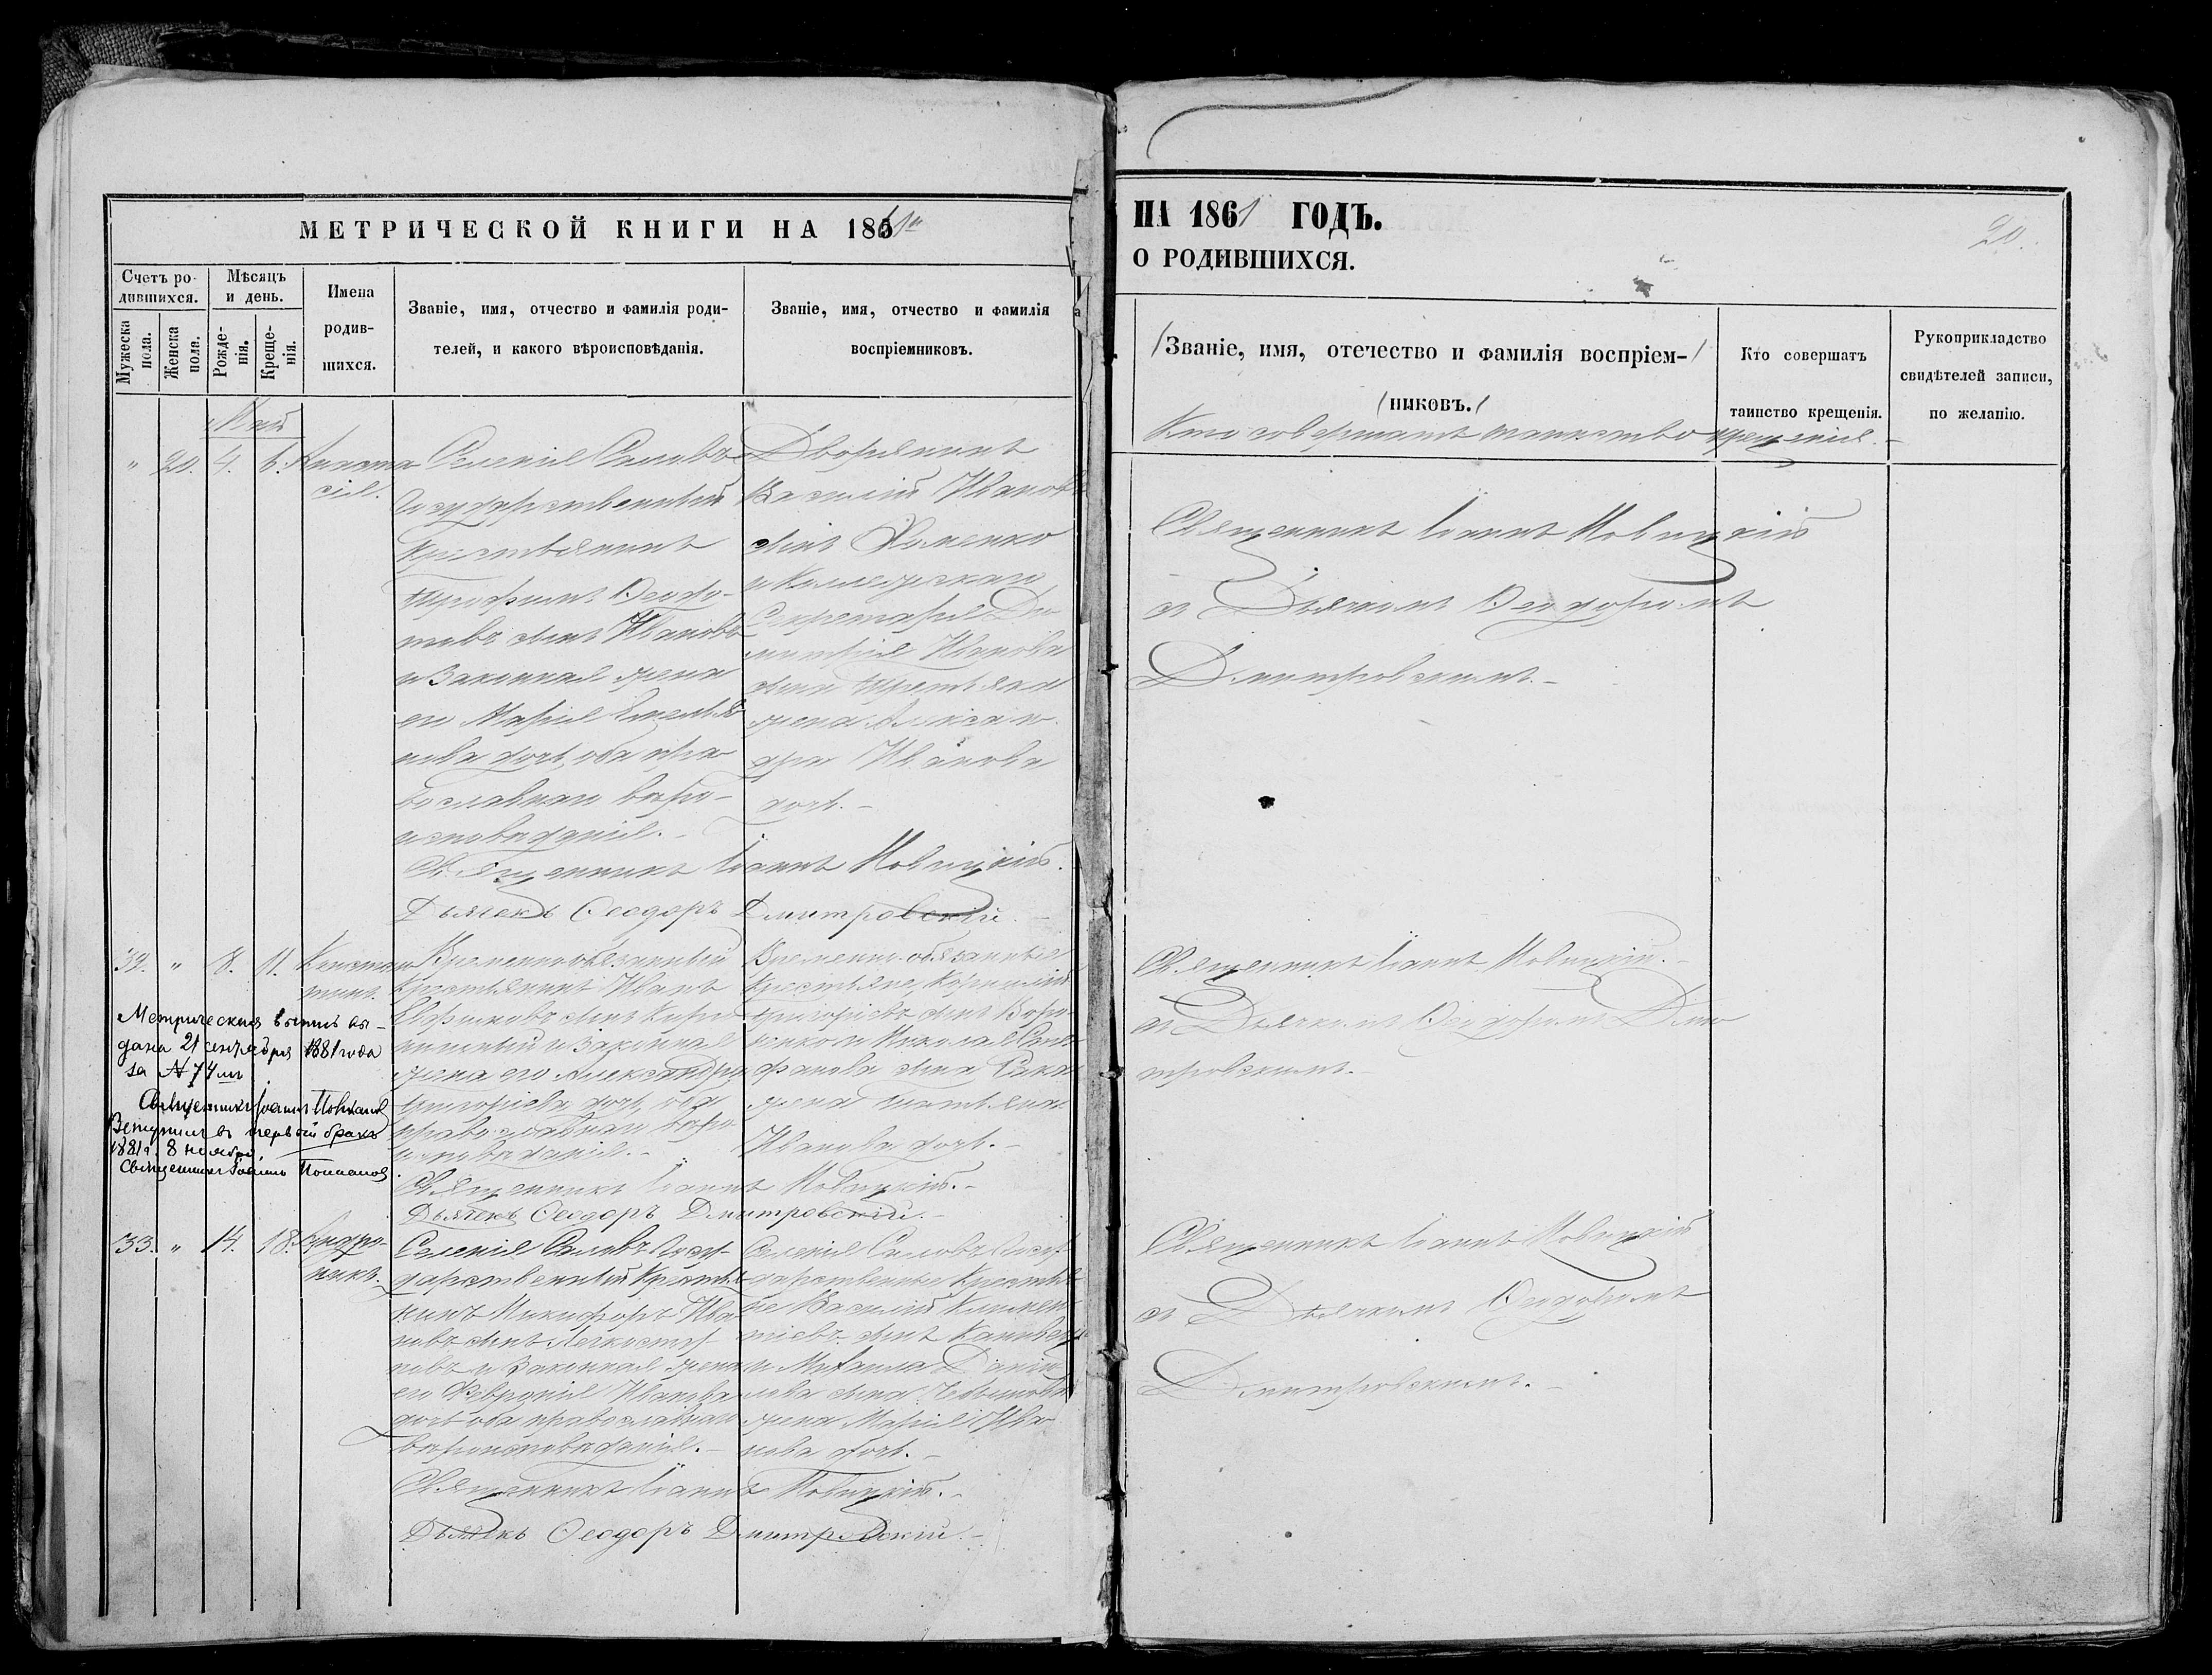 МЕТРИЧЕСКОЙ КНИГИ НА 1861й
Счетъ родившихся.
Мужеска пола.
Женска пола.
Мѣсяцъ и день.
Рожденія.
Крещенія.
Имена родившихся.
Званіе, имя, отчество и фамилія родителей, и какого вѣроисповѣданія.
Званіе, имя, отчество и фамилія воспріемниковъ.
Май
" 20. 4. 6. Анастасія.
Селенія Саловъ
Государственный
крестьянинъ
Трофимъ Ѳедотовъ сынъ Ивановъ
и законная жена
его Марія Емельянова дочь, оба православнаго вѣроисповѣданія.
Дворянинъ
Василій Ивановъ
сынъ Фоменко
и Коллежскаго
Секретаря Димитрія Иванова
сына
жена Александра Иванова
дочь.
Священникъ Іоаннъ Новицкій.
Дьячекъ Ѳеодоръ Дмитровскій.
32. " 8. 11. Константинъ.
Временнообязанный
крестьянинъ Иванъ
Ефимовъ сынъ
и законная
жена его Александра
Григоріева дочь, оба
православнаго вѣроисповѣданія.
Временно-обязанные
крестьяне,
Григоріевъ сынъ
и Николая
сына
жена Татьяна
Иванова дочь.
Метрическая выпись выдана 21 сентября 1881 года
за № 74мъ
Священникъ Іоаннъ
Вступилъ въ первый бракъ
1881 г. 8 ноября.
Священникъ Іоаннъ
Священникъ Іоаннъ Новицкій.
Дьячекъ Ѳеодоръ Дмитровскій.
33. " 14. 18. Андроникъ.
Селенія Саловъ Государственный крестьянинъ Никифоръ Ивановъ сынъ
и законная жена
его Февронія Иванова
дочь оба православнаго
вѣроисповѣданія.
Селенія Саловъ Государственные крестьяне Василій
сынъ
и Михаила
сына
жена Марія Иванова дочь.
Священникъ Іоаннъ Новицкій.
Дьячекъ Ѳеодоръ Дмитровскій.
НА 1861 ГОДЪ.
О РОДИВШИХСЯ.
20.
Званіе, имя, отечество и фамилія воспріемниковъ.
Кто совершалъ таинство крещенія.
Кто совершатъ таинство крещенія.
Рукоприкладство свидѣтелей записи, по желанію.
Священникъ Іоаннъ Новицкій
съ Дьячкомъ Ѳеодоромъ
Дмитровскимъ.
Священникъ Іоаннъ Новицкій.
съ Дьячкомъ Ѳеодоромъ Дмитровскимъ.
Священникъ Іоаннъ Новицкій
съ Дьячкомъ Ѳеодоромъ
Дмитровскимъ.